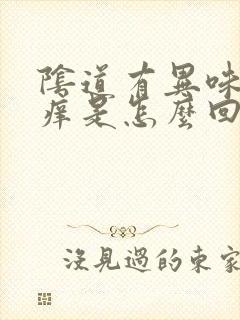 陰道有異味
痒是怎麼回
沒見過的東家